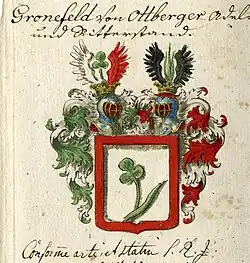 Gronefeld von Ottberger Adel
und Ritterstand.
Conforme arti et statui S. R. J.